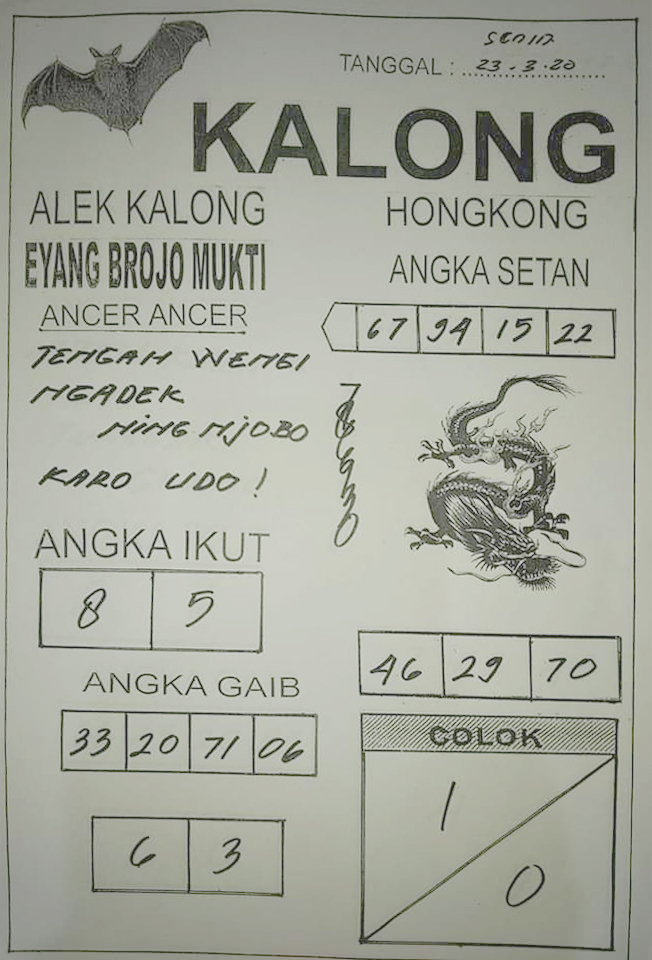 SENIN
TANGGAL : 23.3.20
KALONG
ALEK KALONG
HONGKONG
EYANG BROJO MUKTI
ANGKA SETAN
ANCER ANCER
67 94 15 22
TENGAH WENGI
NGADEK
NING NJOBO
KARO UDO !
7
8
6
9
0
ANGKA IKUT
8 5
46 29 70
ANGKA GAIB
33 20 71 06
COLOK
1
0
6 3